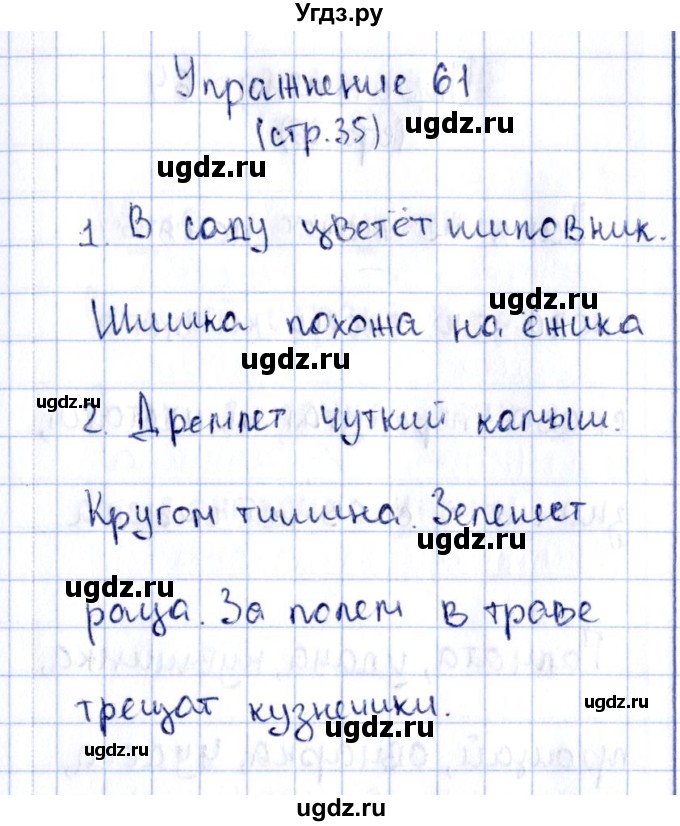 Угдз.ру
Упражнение 61
(стр.35) ugdz.ru
ugdz.ru
1. В саду цветёт шиповник.
ugdz.ru
Шишка похожа на ёжика
ugdz.ru
ugdz.ru
2. Дремлет чуткий камыш.
Кругом тишина. Зеленеет
ugdz.ru
ugdz.ru
роща. За полем в траве
трещат кузнечики.
ugdz.ru
ugdz.ru
ugdz.ru
ugdz.ru